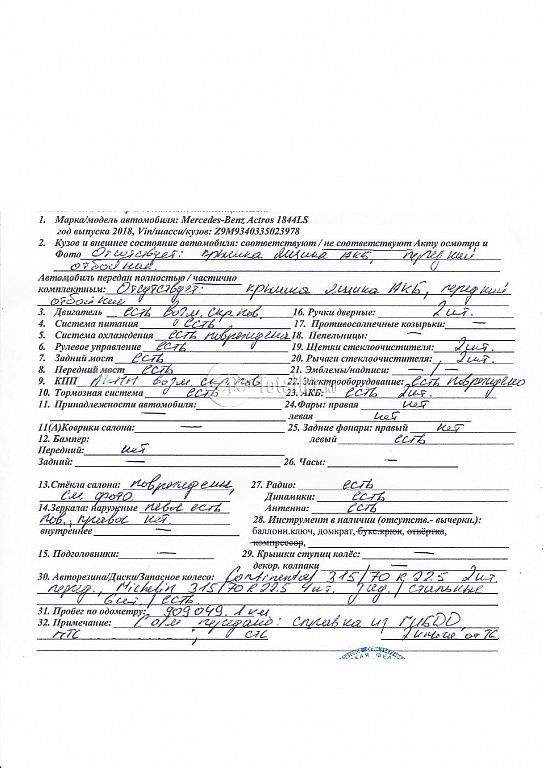 1. Марка/модель автомобиля: Mercedes-Benz Actros 1844LS
год выпуска 2018, Vin/шасси/кузов: Z9M9340335023978
2. Кузов и внешнее состояние автомобиля: соответствуют / не соответствуют Акту осмотра и
Фото Отсутствует: крышка ящика АКБ, передний
отбойник.
Автомобиль передан полностью / частично
комплектным: Отсутствует: крышка ящика АКБ, передний
отбойник
3. Двигатель есть возм. скр. ков. 16. Ручки дверные: 2 шт.
4. Система питания есть 17. Противосолнечные козырьки: —
5. Система охлаждения есть повреждена 18. Пепельницы: —
6. Рулевое управление есть 19. Щетки стеклоочистителя: 2 шт.
7. Задний мост есть 20. Рычаги стеклоочистителя: 2 шт.
8. Передний мост есть 21. Эмблемы/надписи: — / —
9. КПП возм. 22. Электрооборудование: есть повреждено
10. Тормозная система есть 23. АКБ: есть 2 шт.
11. Принадлежности автомобиля: — 24. Фары: правая нет
левая нет
11(А) Коврики салона: — 25. Задние фонари: правый нет
12. Бампер: левый есть
Передний: нет
Задний: — 26. Часы: —
13. Стёкла салона: повреждены, 27. Радио: есть
см. фото Динамики: есть
14. Зеркала: наружные левое есть Антенна: есть
пов., правое нет. 28. Инструмент в наличии (отсутств.- вычеркн.):
внутреннее — баллонн.ключ, домкрат, букс.крюк, отвёртка,
компрессор,
15. Подголовники: — 29. Крышки ступиц колёс: —
декор. колпаки —
30. Авторезина/Диски/Запасное колесо: Continental 315/70 R 22.5 2 шт.
перед., Michelin 315/70 R 22.5 4 шт. зад. / стальные
6 шт. / есть
31. Пробег по одометру: 909 049,1 км
32. Примечание: передано: справка из ГИБДД,
ПТС , СТС 2 ключа от ТС